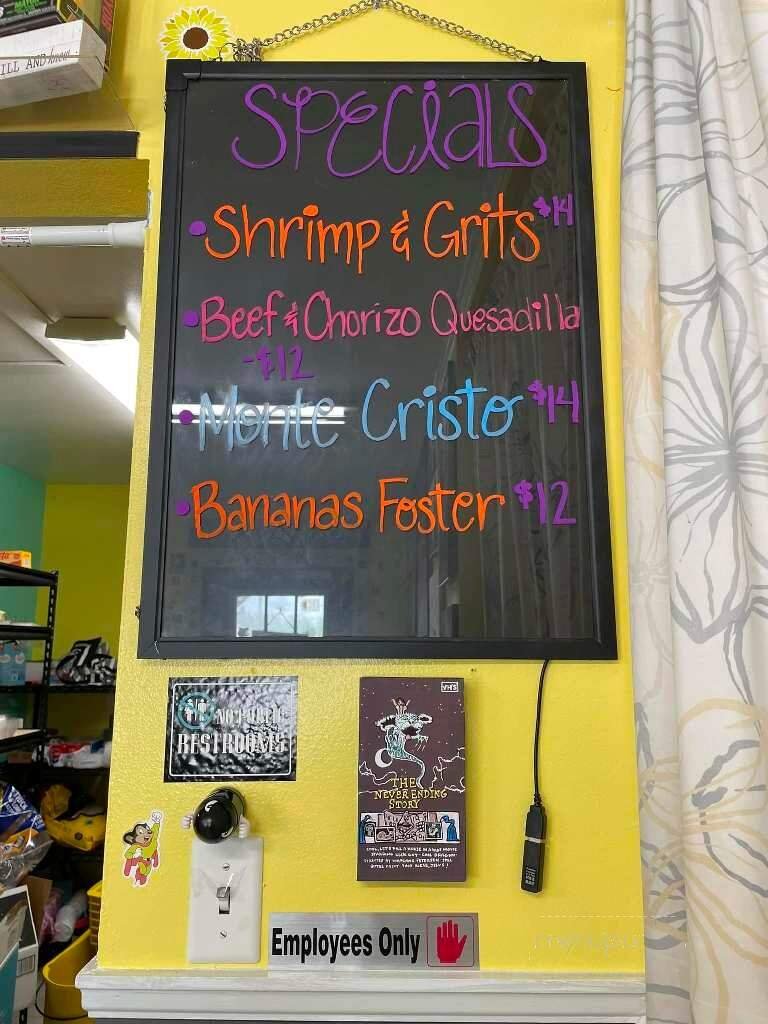 ILL AND
SPECiaLS
• Shrimp & Grits $14
• Beef & Chorizo Quesadilla
-$12
• Monte Cristo $14
• Bananas Foster $12
NO PUBLIC
RESTROOMS
VHS
THE
NEVER ENDING
STORY
Employees Only